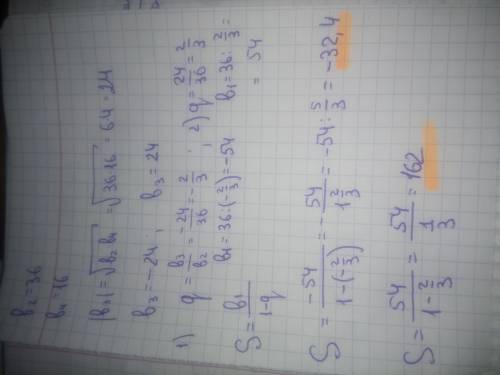 b₂=36
b₄=16
|b₃|=√(b₂b₄)=√(36·16)=6·4=24
b₃=-24; b₃=24
1) q=b₃/b₂=-24/36=-2/3; 2) q=24/36=2/3
b₁=36:(-2/3)=-54 b₁=36:2/3=
=54
S=b₁/(1-q)
S=-54/(1-(-2/3))=-54/(1 2/3)=-54:5/3=-32,4
S=54/(1-2/3)=54/(1/3)=162